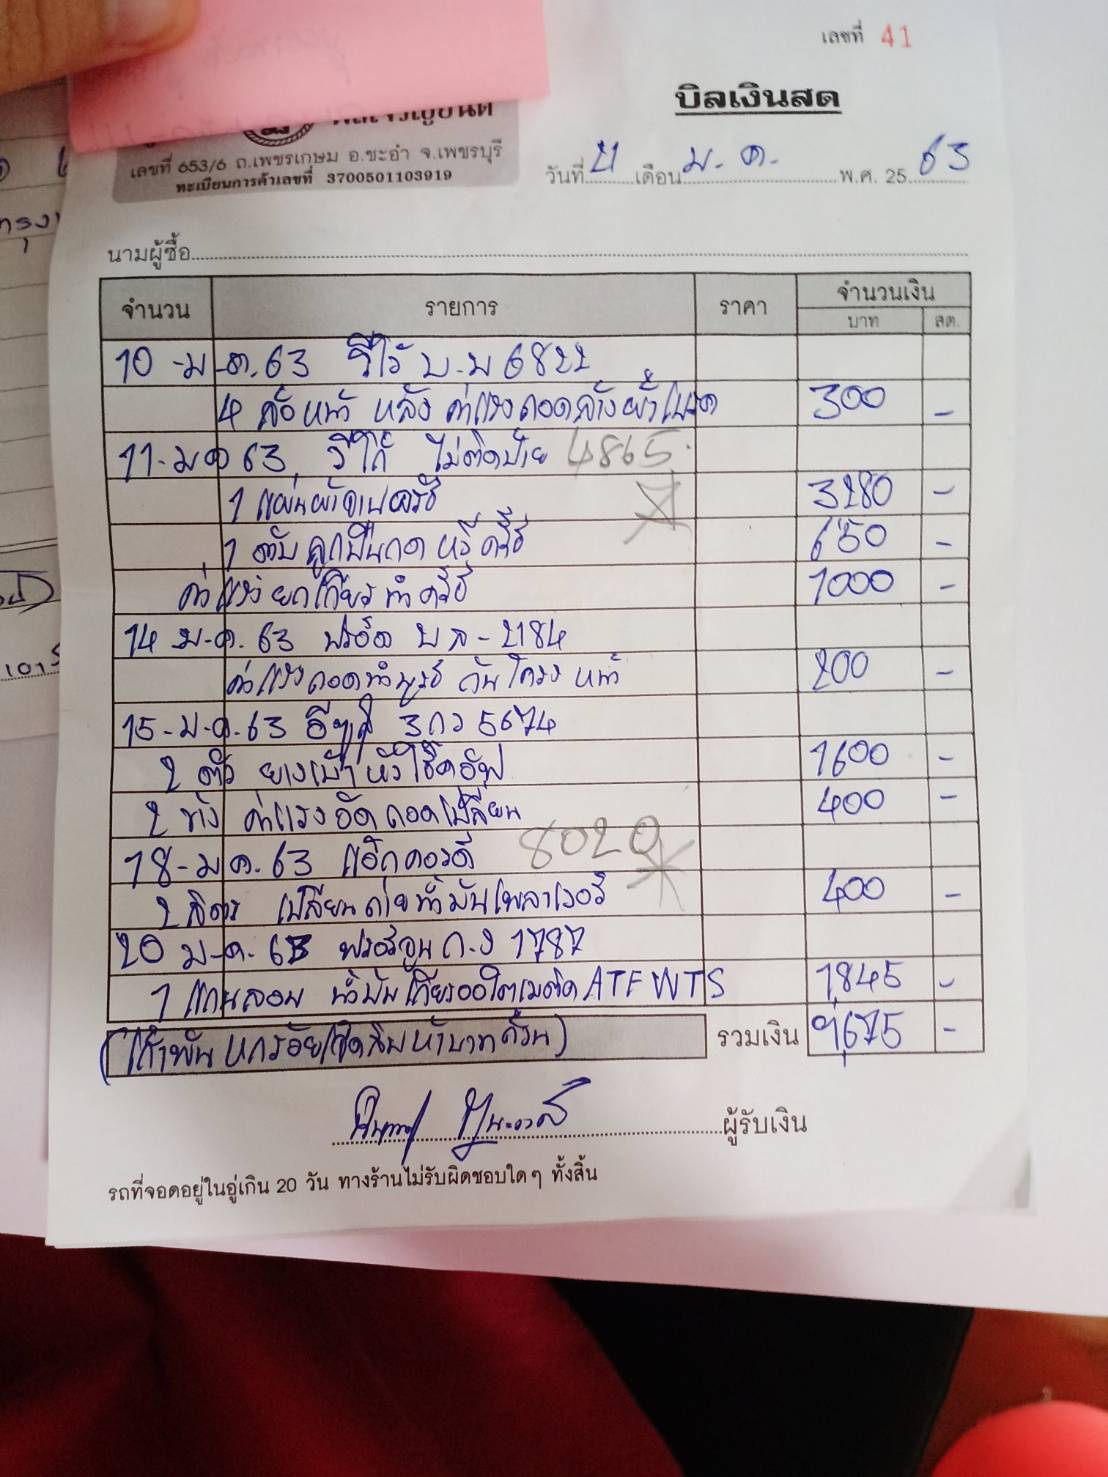 เลขที่ 41
บิลเงินสด
เลขที่ 653/6 ถ.เพชรเกษม อ.ชะอำ จ.เพชรบุรี
ทะเบียนการค้าเลขที่ 3700501103919
วันที่ 21 เดือน ม.ค. พ.ศ. 25 63
นามผู้ซื้อ
จำนวน รายการ ราคา จำนวนเงิน
บาท สต.
10-ม.ค.63 วีโก้ บ.ม 6822
4 ล้อหน้า หลัง ค่าแรงถอดล้างผ้าเบรค 300 -
11-ม.ค 63 วีโก้ ไม่ติดป้าย 4865
1 แผ่นผ้า 3280 -
1 ตับลูกปืนกดหวีครัช 650 -
ค่าแรงยกเกียร์ทำครัช 1000 -
14 ม.ค. 63 ฟอร์ด บล-2184
ค่าแรงถอดทำบูธ กันโครง หน้า 200 -
15-ม.ค.63 อีซูซุ 3กว 5674
2 ตัว ยางเบ้าหัวโช๊คอัพ 1600 -
2 ข้าง ค่าแรงอัดถอดเปลี่ยน 400 -
18-ม.ค.63 แอ๊คคอร์ด 8020
2 ลิตร เปลี่ยนถ่ายน้ำมันเพาเวอร์ 400 -
20 ม.ค. 63 ฟอร์จูน ก.ง 1787
1 แกนลอน น้ำมันเกียร์ออโตเมติค ATF WTS 1845 -
(เก้าพันหกร้อยเจ็ดสิบห้าบาทถ้วน) รวมเงิน 9,675 -
ผู้รับเงิน
รถที่จอดอยู่ในอู่เกิน 20 วัน ทางร้านไม่รับผิดชอบใดๆ ทั้งสิ้น